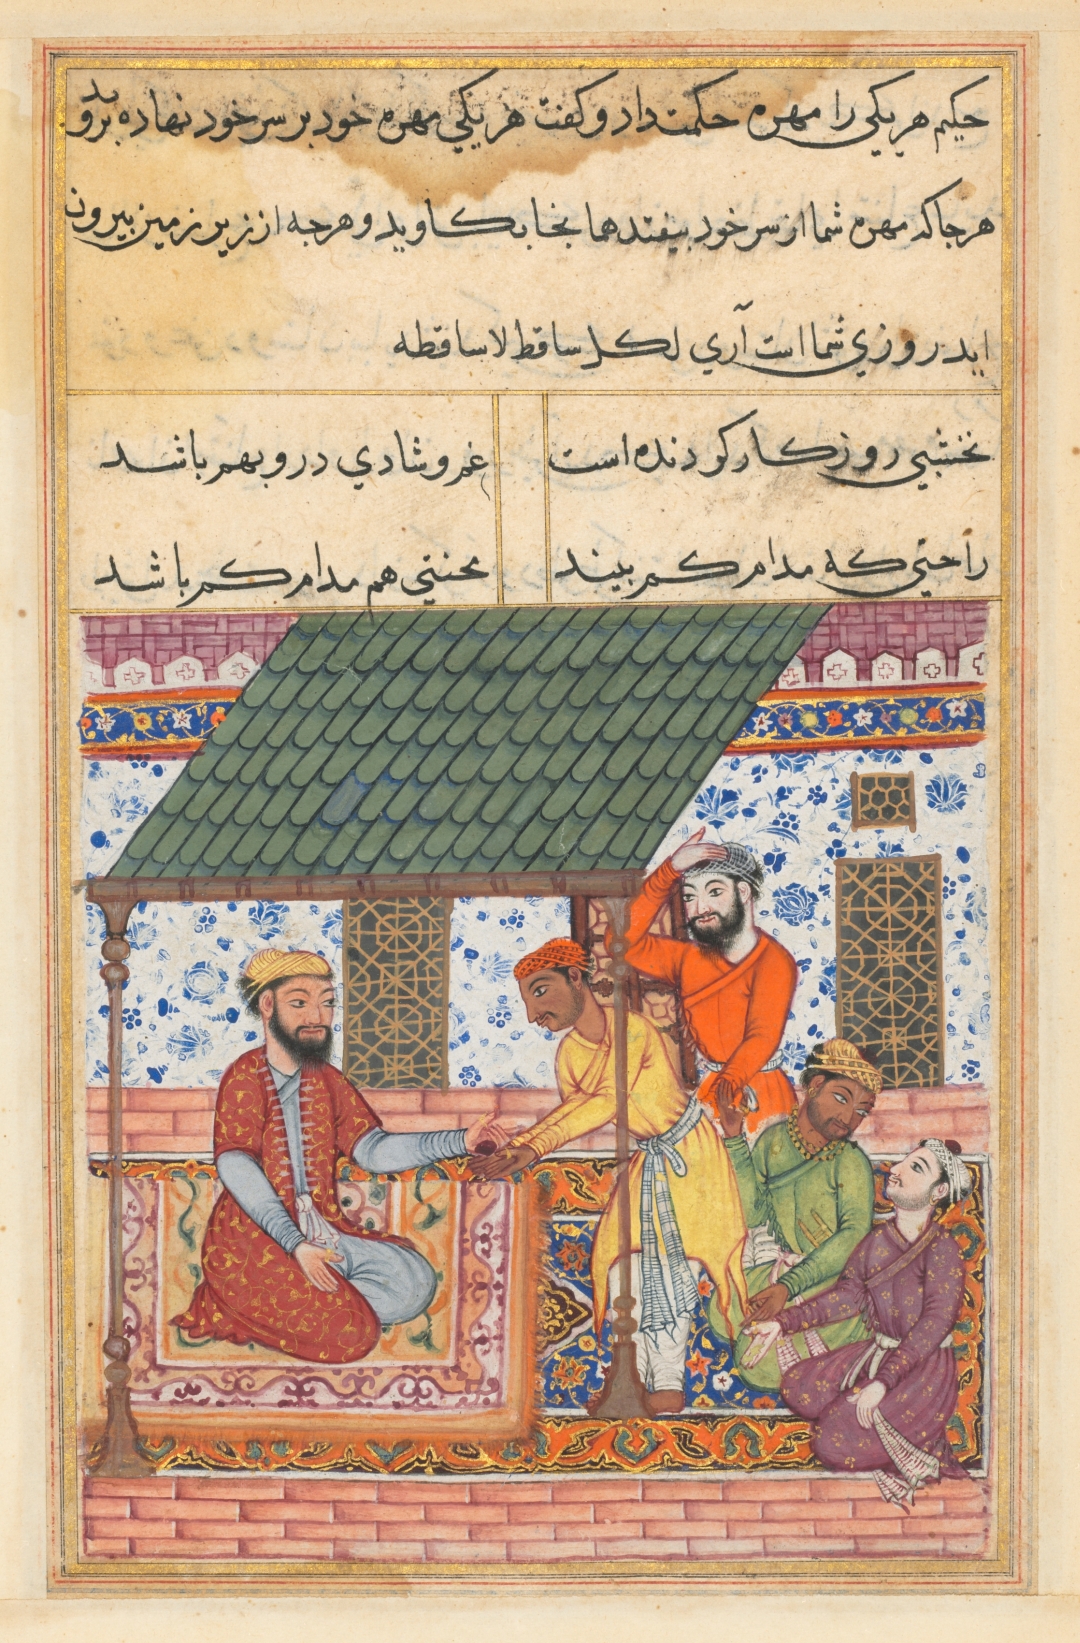 حکیم هر یکی را مهره حکمت داد و کفت هر یکی مهره خود بر سر خود نهاده بروید
هر جا که مهره شما از سر خود بیفتد همانجا بکاوید و هرجه از زیر زمین بیرون
اید روزي شما است آري لکل ساقط لاساقطه
نخشبي روزکار کردنده است
غم و شادي درو بهم باشد
راحتي که مدام کم بیند
محنتي هم مدام کم باشد